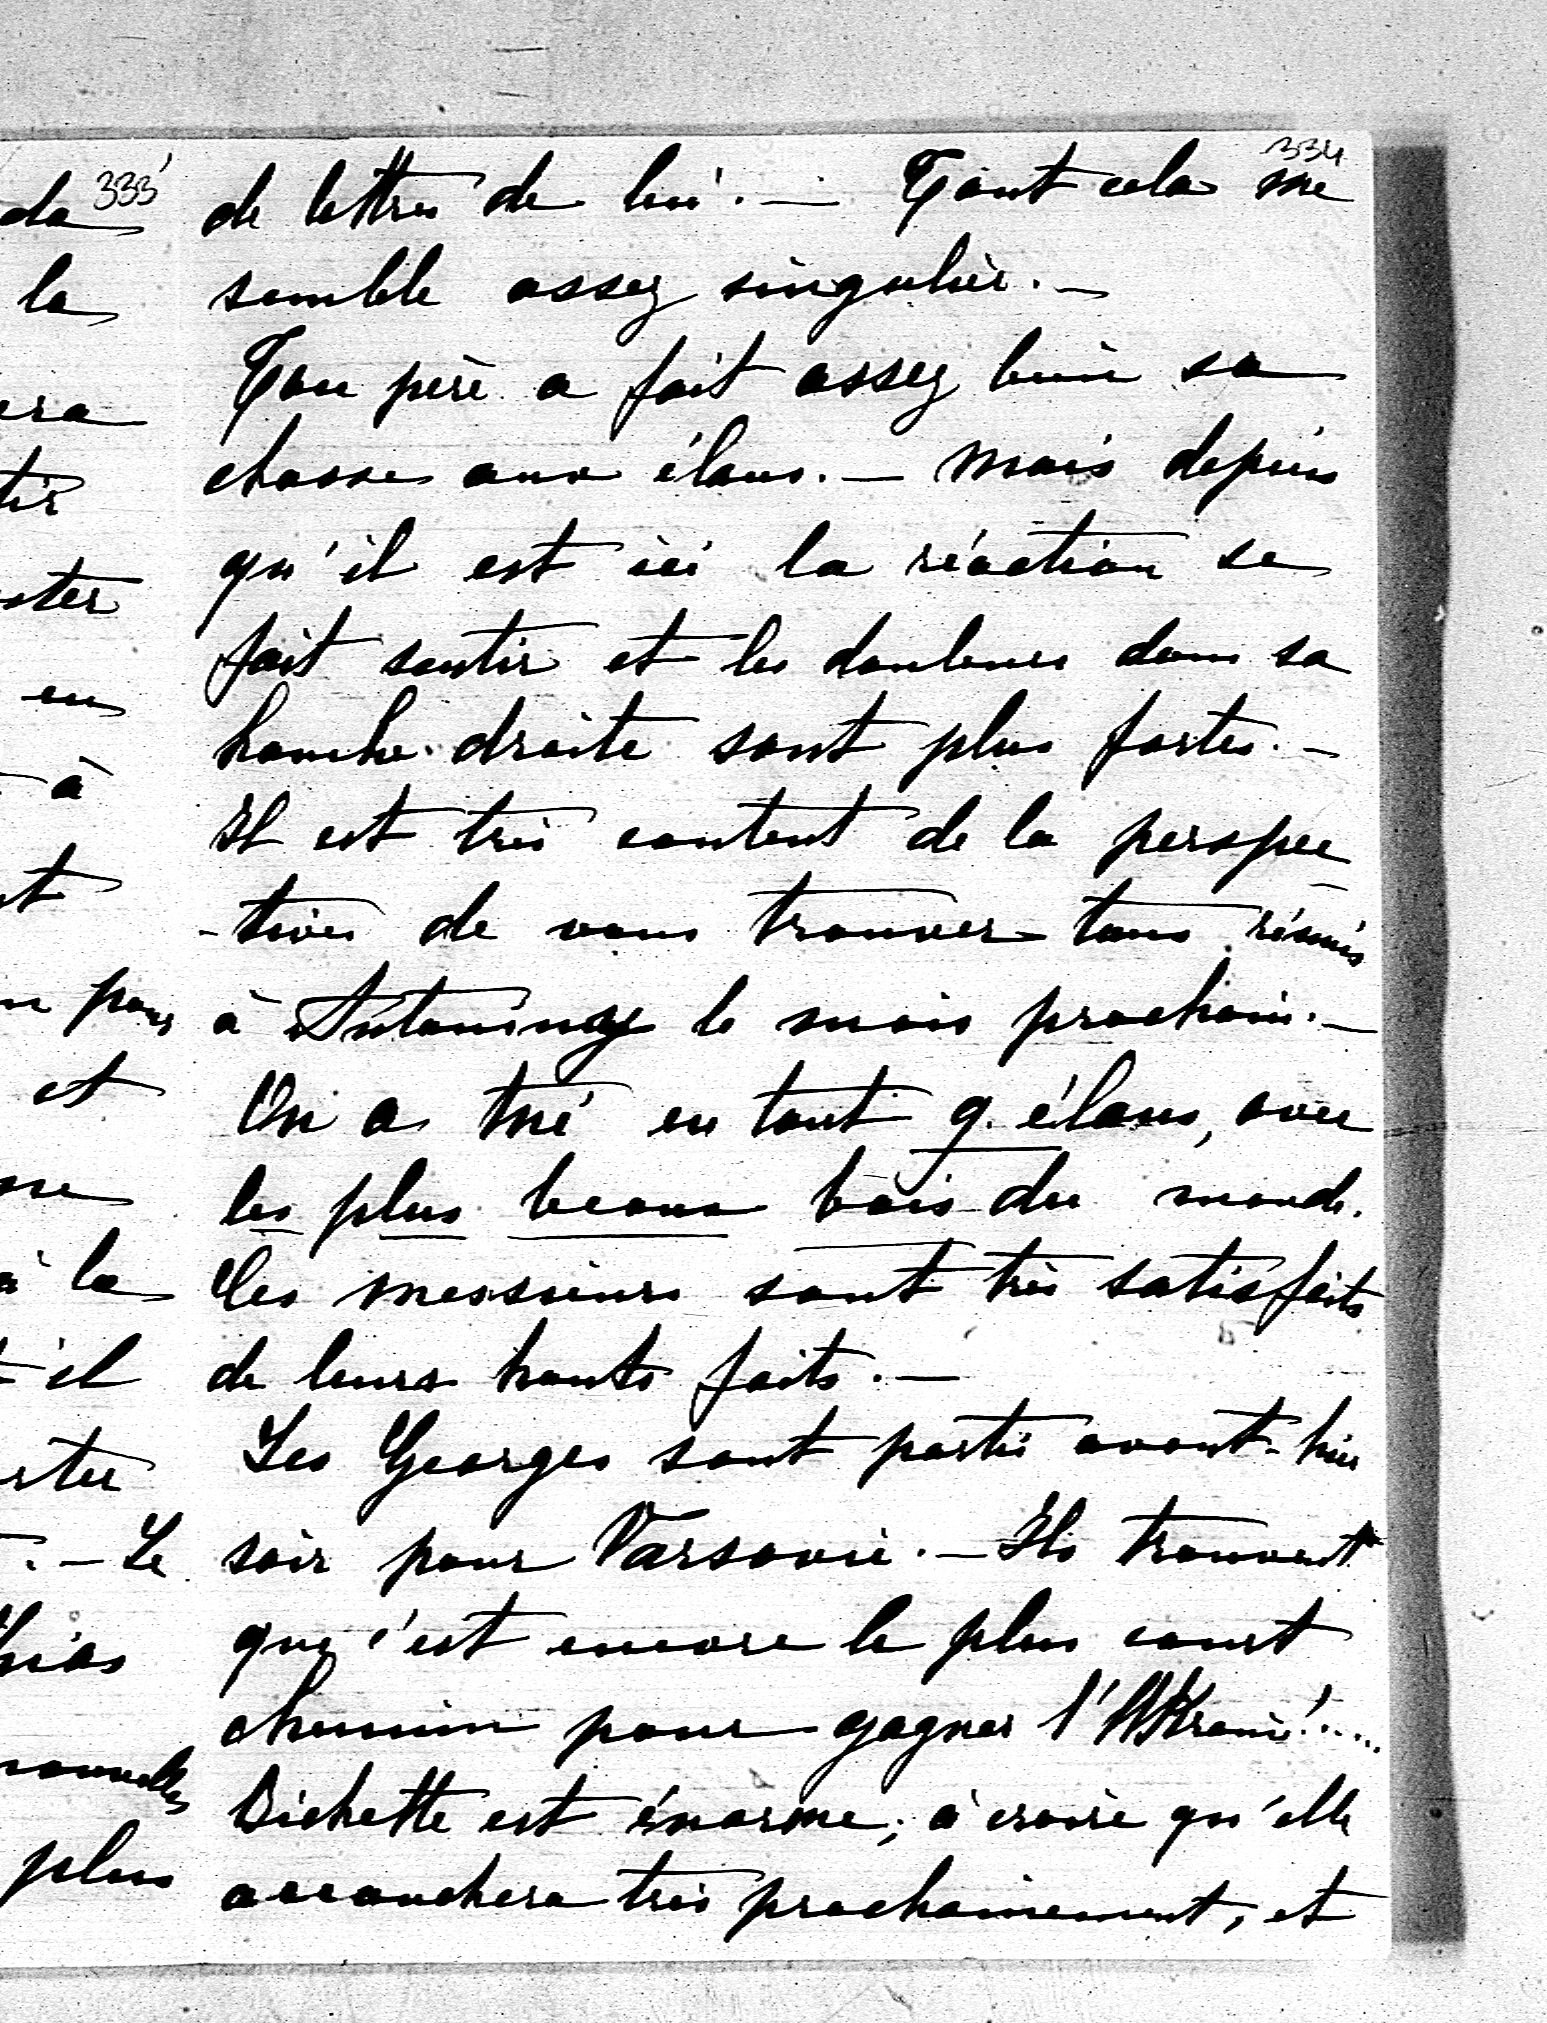 333
334
da
la
era
tir
ster
en
à
t
n pour
et
me
à la
t-il
rter
. — Le
nouvelles
plus
de lettres de lui. — Tout cela me
semble assez singulier. —
Ton père a fait assez bien sa
chasse aux élans. — Mais depuis
qu'il est ici la réaction se
fait sentir et les douleurs dans sa
hanche droite sont plus fortes. —
Il est très content de la perspec
-tives de vous trouver tous réunis
à Antoniny le mois prochain. —
On a tué en tout 9. élans, avec
les plus beaux bois du monde.
Ces messieurs sont très satisfaits
de leurs hauts faits. —
Les Georges sont partis avant-hier
soir pour Varsovie. — Ils trouvent
que c'est encore le plus court
chemin pour gagner l'Ukraine!....
Bichette est énorme; à croire qu'elle
accouchera très prochainement, et